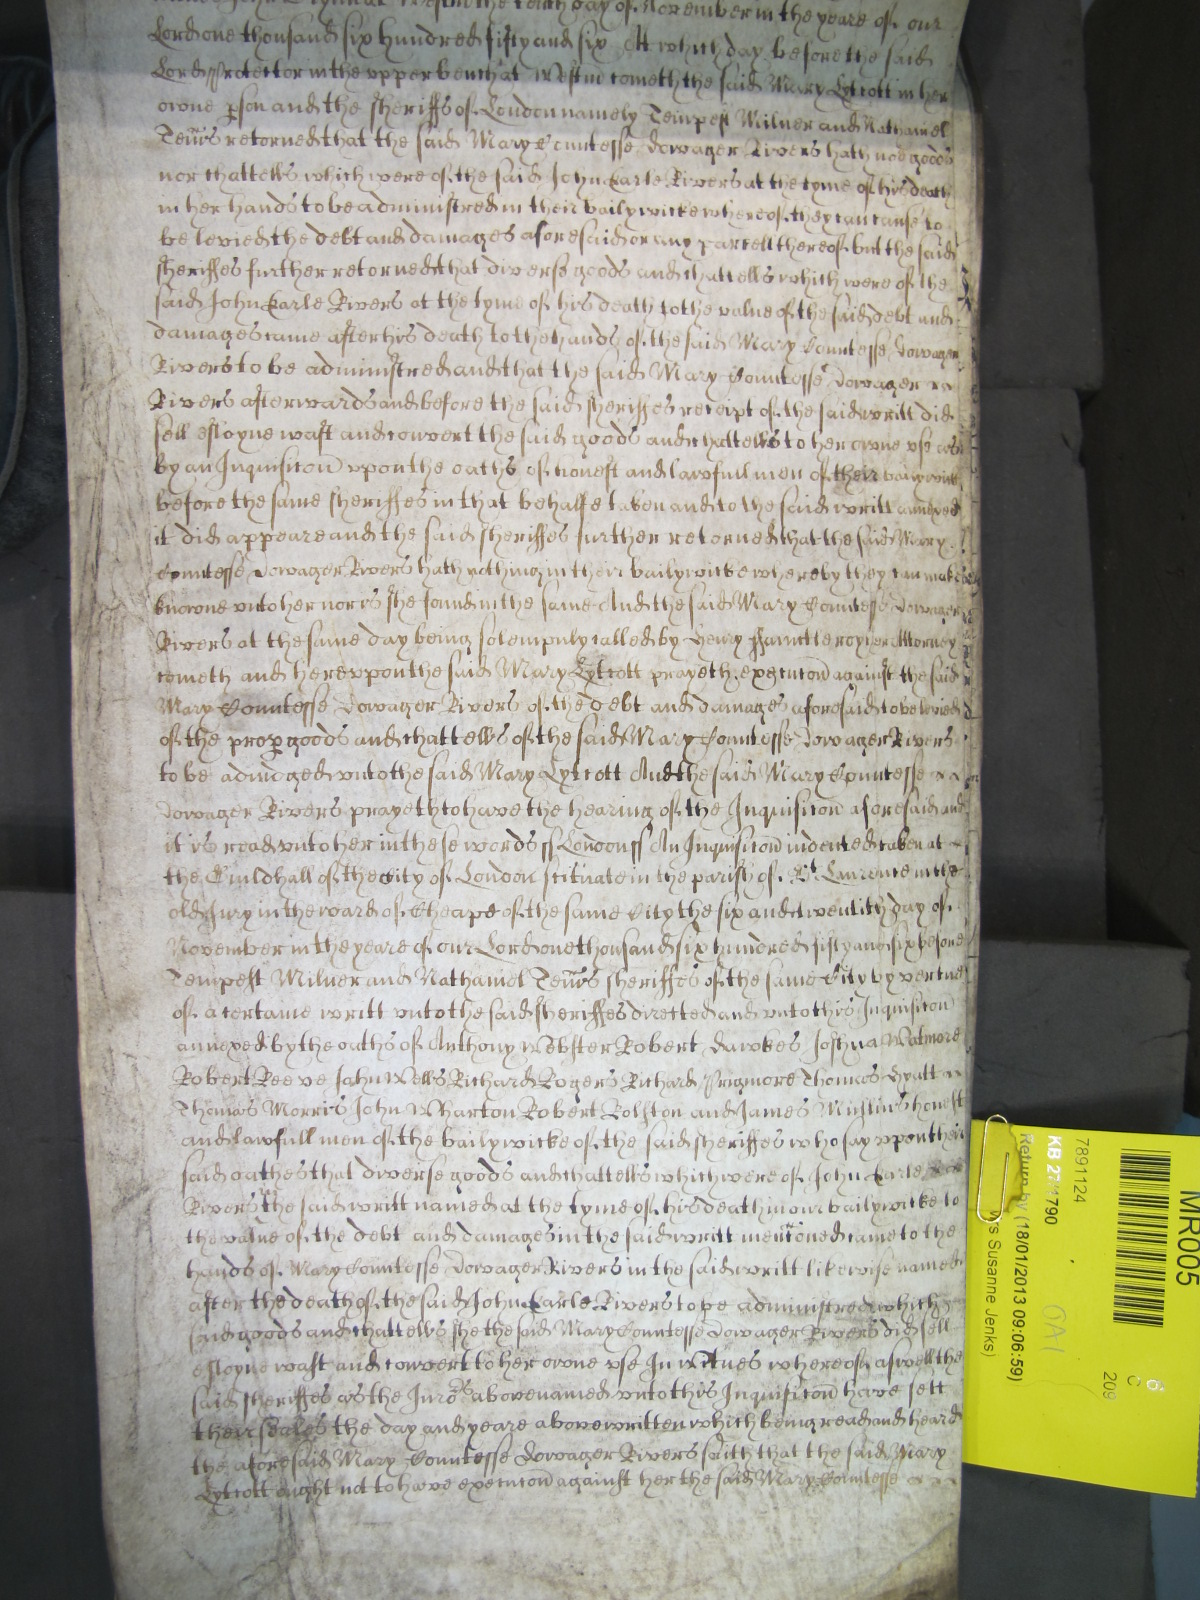 the tenth day of November in the yeare of our
Lord one thousand six hundred fifty and six Att which day before the said
Lord Protector in the vpper bench at Westm cometh the said Mary Lytcott in her
owne pson and the sheriffs of London namely Tempest Milner and Nathaniel
Tem̃s retorned that the said Mary Countesse Dowager Rivers hath noe goods
nor chattells which were of the said John Earle Rivers at the tyme of his death
in her hands to be administred in their bailywicke whereof they can cause to
be levied the debt and damages aforesaid or any parcell thereof but the said
sheriffes further retorned that diverse goods and chattells which were of the
said John Earle Rivers at the tyme of his death to the value of the said debt and
damages came after his death to the hands of the said Mary Countesse Dowager
Rivers to be administred and that the said Mary Countesse Dowager
Rivers afterwards and before the said sheriffes receipt of the said writt did
sell esloyne wast and convert the said goods and chattells to her owne vse as
by an Inquisicon vpon the oaths of honest and lawfull men of their bailywick
before the same sheriffes in that behalfe taken and to the said writt annexed
it did appeare and the said sheriffes further retorned that the said Mary
Countesse Dowager Rivers hath nothing in their bailywicke whereby they can make
knowne vnto her nor is she found in the same And the said Mary Countesse Dowager
Rivers at the same day being solempnly called by Henry her Attorney
cometh and herevpon the said Mary Lytcott prayeth execucon against the said
Mary Countesse Dowager Rivers of the debt and damages aforesaid to be levied
of the prop goods and chattells of the said Mary Countesse Dowager Rivers
to be adiudged vnto the said Mary Lytcott And the said Mary Countesse
Dowager Rivers prayeth to have the hearing of the Inquisicon aforesaid and
it is read vnto her in these words ss London ss An Inquisicon indented taken at
the Guildhall of the City of London scituate in the parish of St Laurence in the
old Jury in the ward of Cheape of the same City the six and twentith day of
November in the yeare of our Lord one thousand six hundred fifty and six before
Tempest Milner and Nathaniel Tem̃s sheriffes of the same City by vertue
of a certaine writt vnto the said sheriffes directed and vnto this Inquisicon
annexed by the oaths of Anthony Webster Robert Dawkes Joshua Watmore
Robert Reeve John Wells Richard Rogers Richard Prigmore Thomas Hyatt
Thomas Morris John Wharton Robert Rolston and James Mustins honest
and lawfull men of the bailywicke of the said sheriffes who say vpon their
said oathes that diverse goods and chattells which were of John Earle
Rivers the said writt named at the tyme of his death in our bailywicke to
the value of the debt and damages in the said writt mencioned came to the
hands of Mary Countesse Dowager Rivers in the said writt likewise named
after the death of the said John Earle Rivers to be administred which
said goods and chattells she the said Mary Countesse Dowager Rivers did sell
esloyne wast and convert to her owne vse In witnes whereof aswell the
said sheriffes as the Jurors abovenamed vnto this Inquisicon have sett
their seales the day and yeare above written which being read and heard
the aforesaid Mary Countesse Dowager Rivers saith that the said Mary
Lytcott ought not to have execucon against her the said Mary Countesse
MR005
6
C
209
7891124
KB 27/1790
Return by (18/01/2013 09:06:59)
Susanne Jenks)